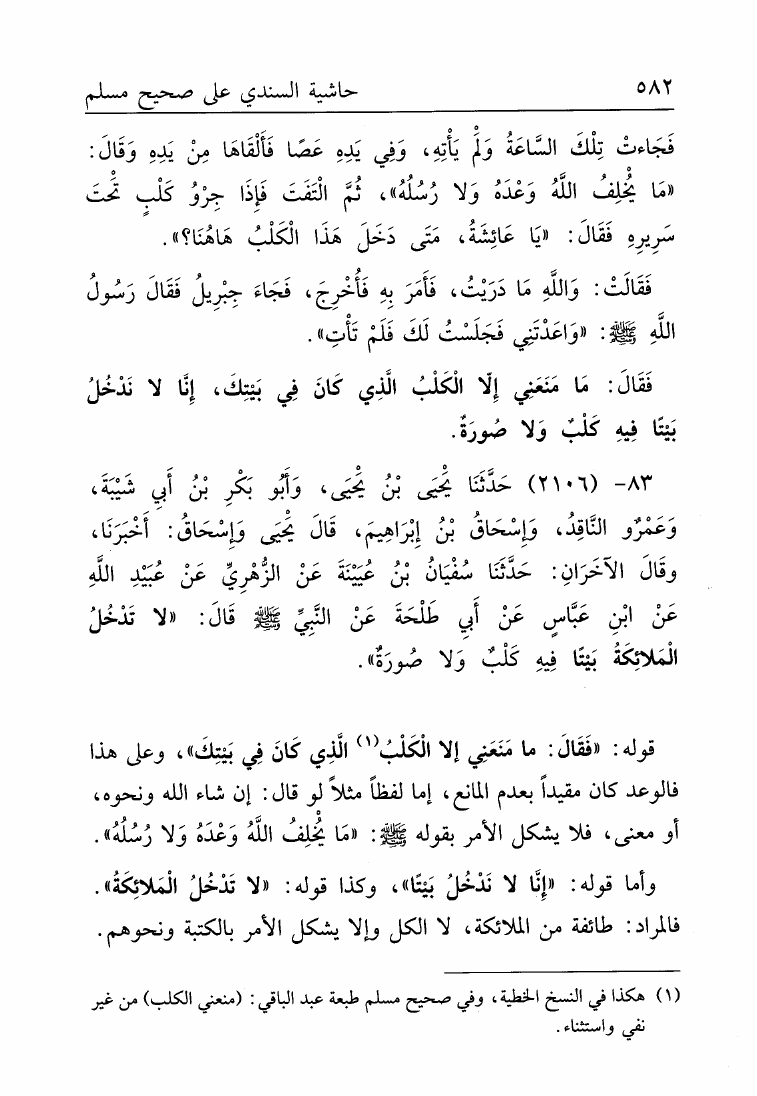 ٥٨٢
حاشية السندي على صحيح مسلم
فَجَاءتْ تِلْكَ السَّاعَةُ وَلَمْ يَأْتِهِ، وَفِي يَدِهِ عَصًا فَأَلْقَاهَا مِنْ يَدِهِ وَقَالَ:
«مَا يُخْلِفُ اللَّهُ وَعْدَهُ وَلا رُسُلُهُ»، ثُمَّ الْتَفَتَ فَإِذَا جِرْوُ كَلْبٍ تَحْتَ
سَرِيرِهِ فَقَالَ: «يَا عَائِشَةُ، مَتَى دَخَلَ هَذَا الْكَلْبُ هَاهُنَا؟».
فَقَالَتْ: وَاللَّهِ مَا دَرَيْتُ، فَأَمَرَ بِهِ فَأُخْرِجَ، فَجَاءَ جِبْرِيلُ فَقَالَ رَسُولُ
اللَّهِ ﷺ: «وَاعَدْتَنِي فَجَلَسْتُ لَكَ فَلَمْ تَأْتِ».
فَقَالَ: مَا مَنَعَنِي إِلَّا الْكَلْبُ الَّذِي كَانَ فِي بَيْتِكَ، إِنَّا لا نَدْخُلُ
بَيْتًا فِيهِ كَلْبٌ وَلا صُورَةٌ.
٨٣- (٢١٠٦) حَدَّثَنَا يَحْيَى بْنُ يَحْيَى، وَأَبُو بَكْرِ بْنُ أَبِي شَيْبَةَ،
وَعَمْرٌو النَّاقِدُ، وَإِسْحَاقُ بْنُ إِبْرَاهِيمَ، قَالَ يَحْيَى وَإِسْحَاقُ: أَخْبَرَنَا،
وقَالَ الآخَرَانِ: حَدَّثَنَا سُفْيَانُ بْنُ عُيَيْنَةَ عَنْ الزُّهْرِيِّ عَنْ عُبَيْدِ اللَّهِ
عَنْ ابْنِ عَبَّاسٍ عَنْ أَبِي طَلْحَةَ عَنْ النَّبِيِّ ﷺ قَالَ: «لا تَدْخُلُ
الْمَلائِكَةُ بَيْتًا فِيهِ كَلْبٌ وَلا صُورَةٌ».
قوله: «فَقَالَ: ما مَنَعَنِي إلا الْكَلْبُ(١) الَّذِي كَانَ فِي بَيْتِكَ»، وعلى هذا
فالوعد كان مقيداً بعدم المانع، إما لفظاً مثلاً لو قال: إن شاء الله ونحوه،
أو معنى، فلا يشكل الأمر بقوله ﷺ: «مَا يُخْلِفُ اللَّهُ وَعْدَهُ وَلا رُسُلُهُ».
وأما قوله: «إِنَّا لا نَدْخُلُ بَيْتًا»، وكذا قوله: «لا تَدْخُلُ الْمَلائِكَةُ».
فالمراد: طائفة من الملائكة، لا الكل وإلا يشكل الأمر بالكتبة ونحوهم.
(١) هكذا في النسخ الخطية، وفي صحيح مسلم طبعة عبد الباقي: (منعني الكلب) من غير
نفي واستثناء.